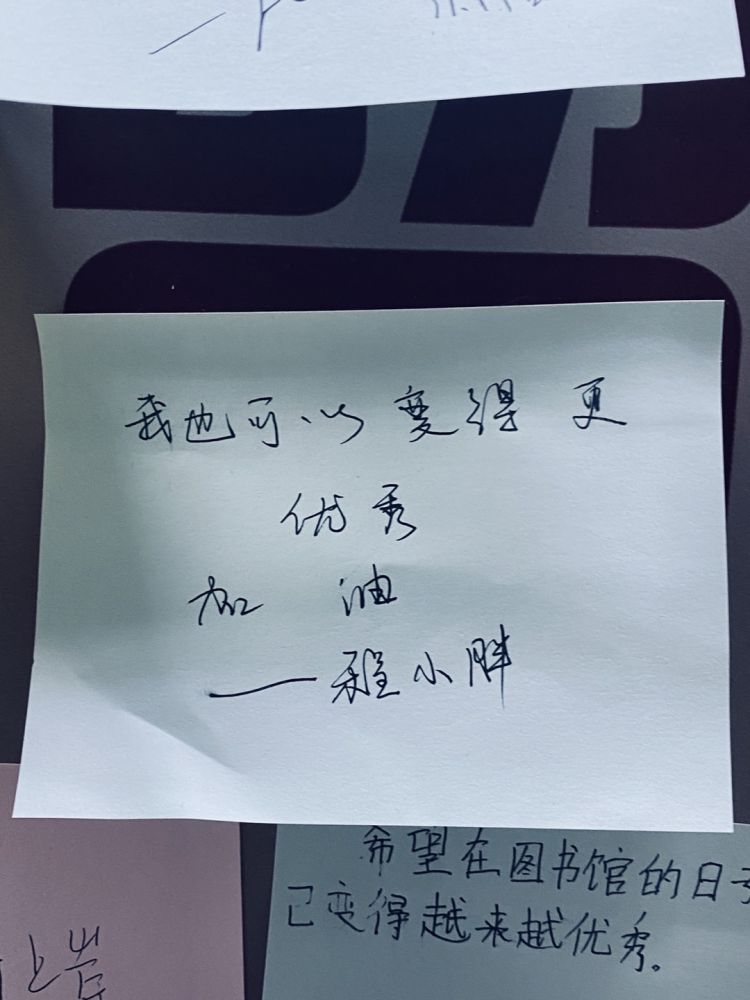 我也可以变得更
优秀
加油
——程小胖
希望在图书馆的日
己变得越来越优秀。
上岸